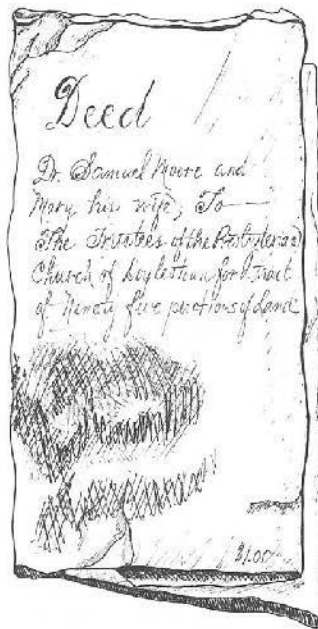 Deed
Dr. Samuel Moore and
Mary his wife, To
The Trustees of the Presbyterian
Church of Doylestown for Tract
of Ninety five portions of Land
$1.00